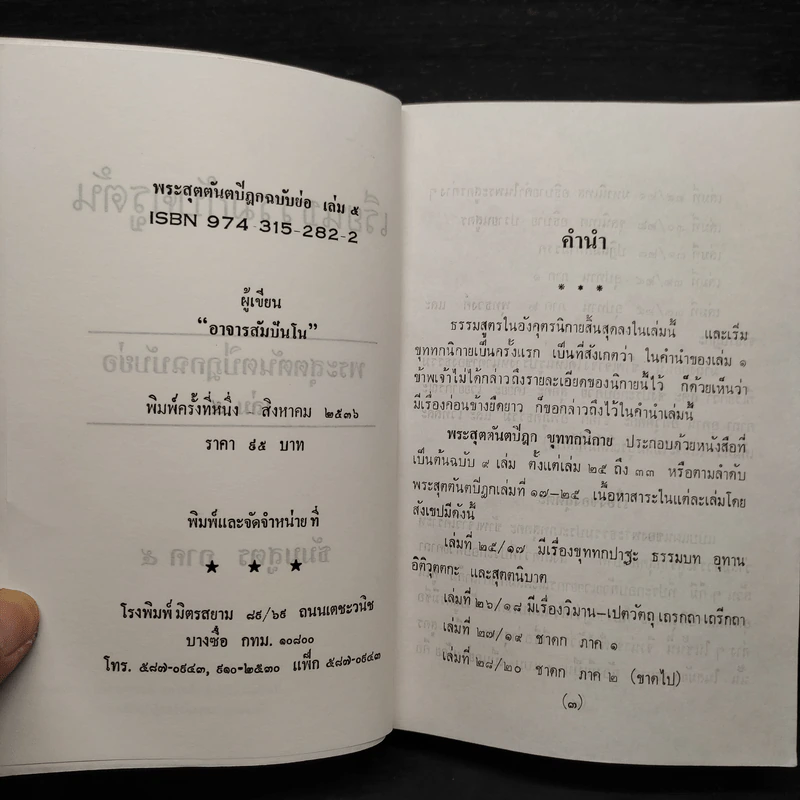 พระสุตตันตปิฎกฉบับย่อ เล่ม ๕
ISBN 974-315-282-2
ผู้เขียน
“อาจารสัมปันโน”
พิมพ์ครั้งที่หนึ่ง สิงหาคม ๒๕๓๖
ราคา ๙๕ บาท
พิมพ์และจัดจำหน่าย ที่
★ ★ ★
โรงพิมพ์ มิตรสยาม ๘๙/๖๙ ถนนเตชะวนิช
บางซื่อ กทม. ๑๐๘๐๐
โทร. ๕๘๗-๐๙๔๓, ๙๑๐-๒๕๓๐ แฟ็ก ๕๘๗-๐๙๔๓
คำนำ
* * *
ธรรมสูตรในอังคุตรนิกายสิ้นสุดลงในเล่มนี้ และเริ่ม
ขุททกนิกายเป็นครั้งแรก เป็นที่สังเกตว่า ในคำนำของเล่ม ๑
ข้าพเจ้าไม่ได้กล่าวถึงรายละเอียดของนิกายนี้ไว้ ก็ด้วยเห็นว่า
มีเรื่องค่อนข้างยืดยาว ก็ขอกล่าวถึงไว้ในคำนำเล่มนี้
พระสุตตันตปิฎก ขุททกนิกาย ประกอบด้วยหนังสือที่
เป็นต้นฉบับ ๙ เล่ม ตั้งแต่เล่ม ๒๕ ถึง ๓๓ หรือตามลำดับ
พระสุตตันตปิฎกเล่มที่ ๑๗–๒๕ เนื้อหาสาระในแต่ละเล่มโดย
สังเขปมีดังนี้
เล่มที่ ๒๕/๑๗ มีเรื่องขุททกปาฐะ ธรรมบท อุทาน
อิติวุตตกะ และสุตตนิบาต
เล่มที่ ๒๖/๑๘ มีเรื่องวิมาน–เปตวัตถุ เถรกถา เถรีกถา
เล่มที่ ๒๗/๑๙ ชาดก ภาค ๑
เล่มที่ ๒๘/๒๐ ชาดก ภาค ๒ (ขาดไป)
(๓)